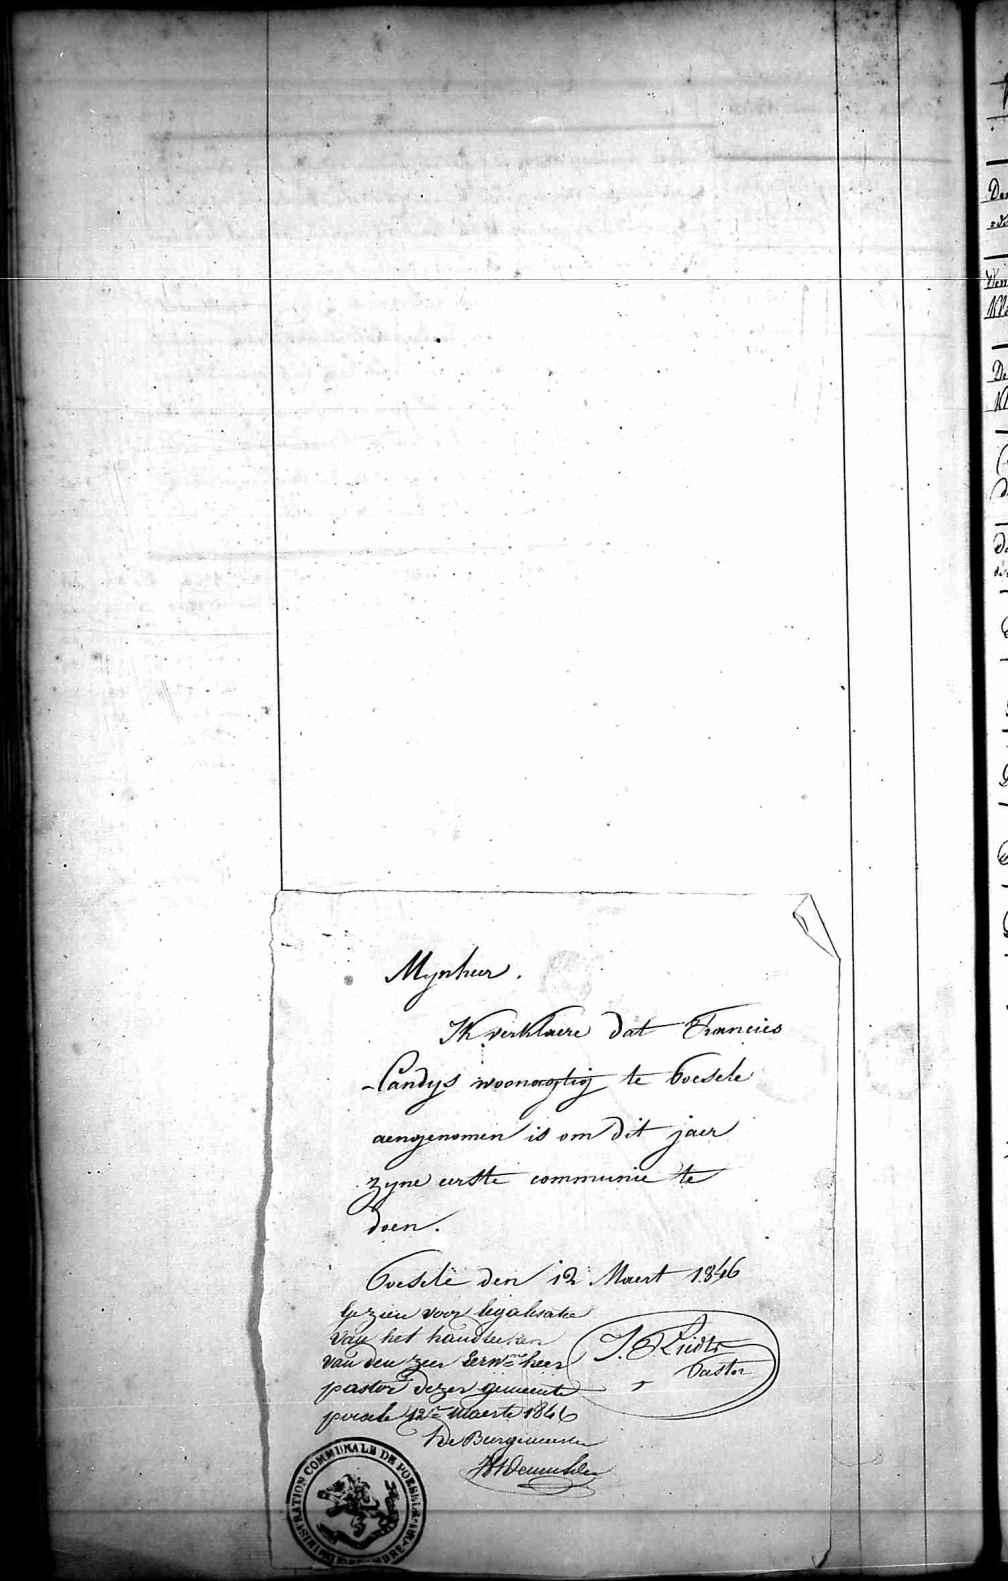 Mynheer.
Ik verklaere dat Francies
Landys woonagtig te Poesele
aengenomen is om dit jaer
zyne eerste communie te
doen.
Poesele den 12 Maert 1846
Gezien voor legalisatie
van het handteeken
van den zeer Eerwen heer
pastor dezer gemeente
poesele 12e Maerte 1846
De Burgemeester
Pastor
ADMINISTRATION COMMUNALE DE POESELE